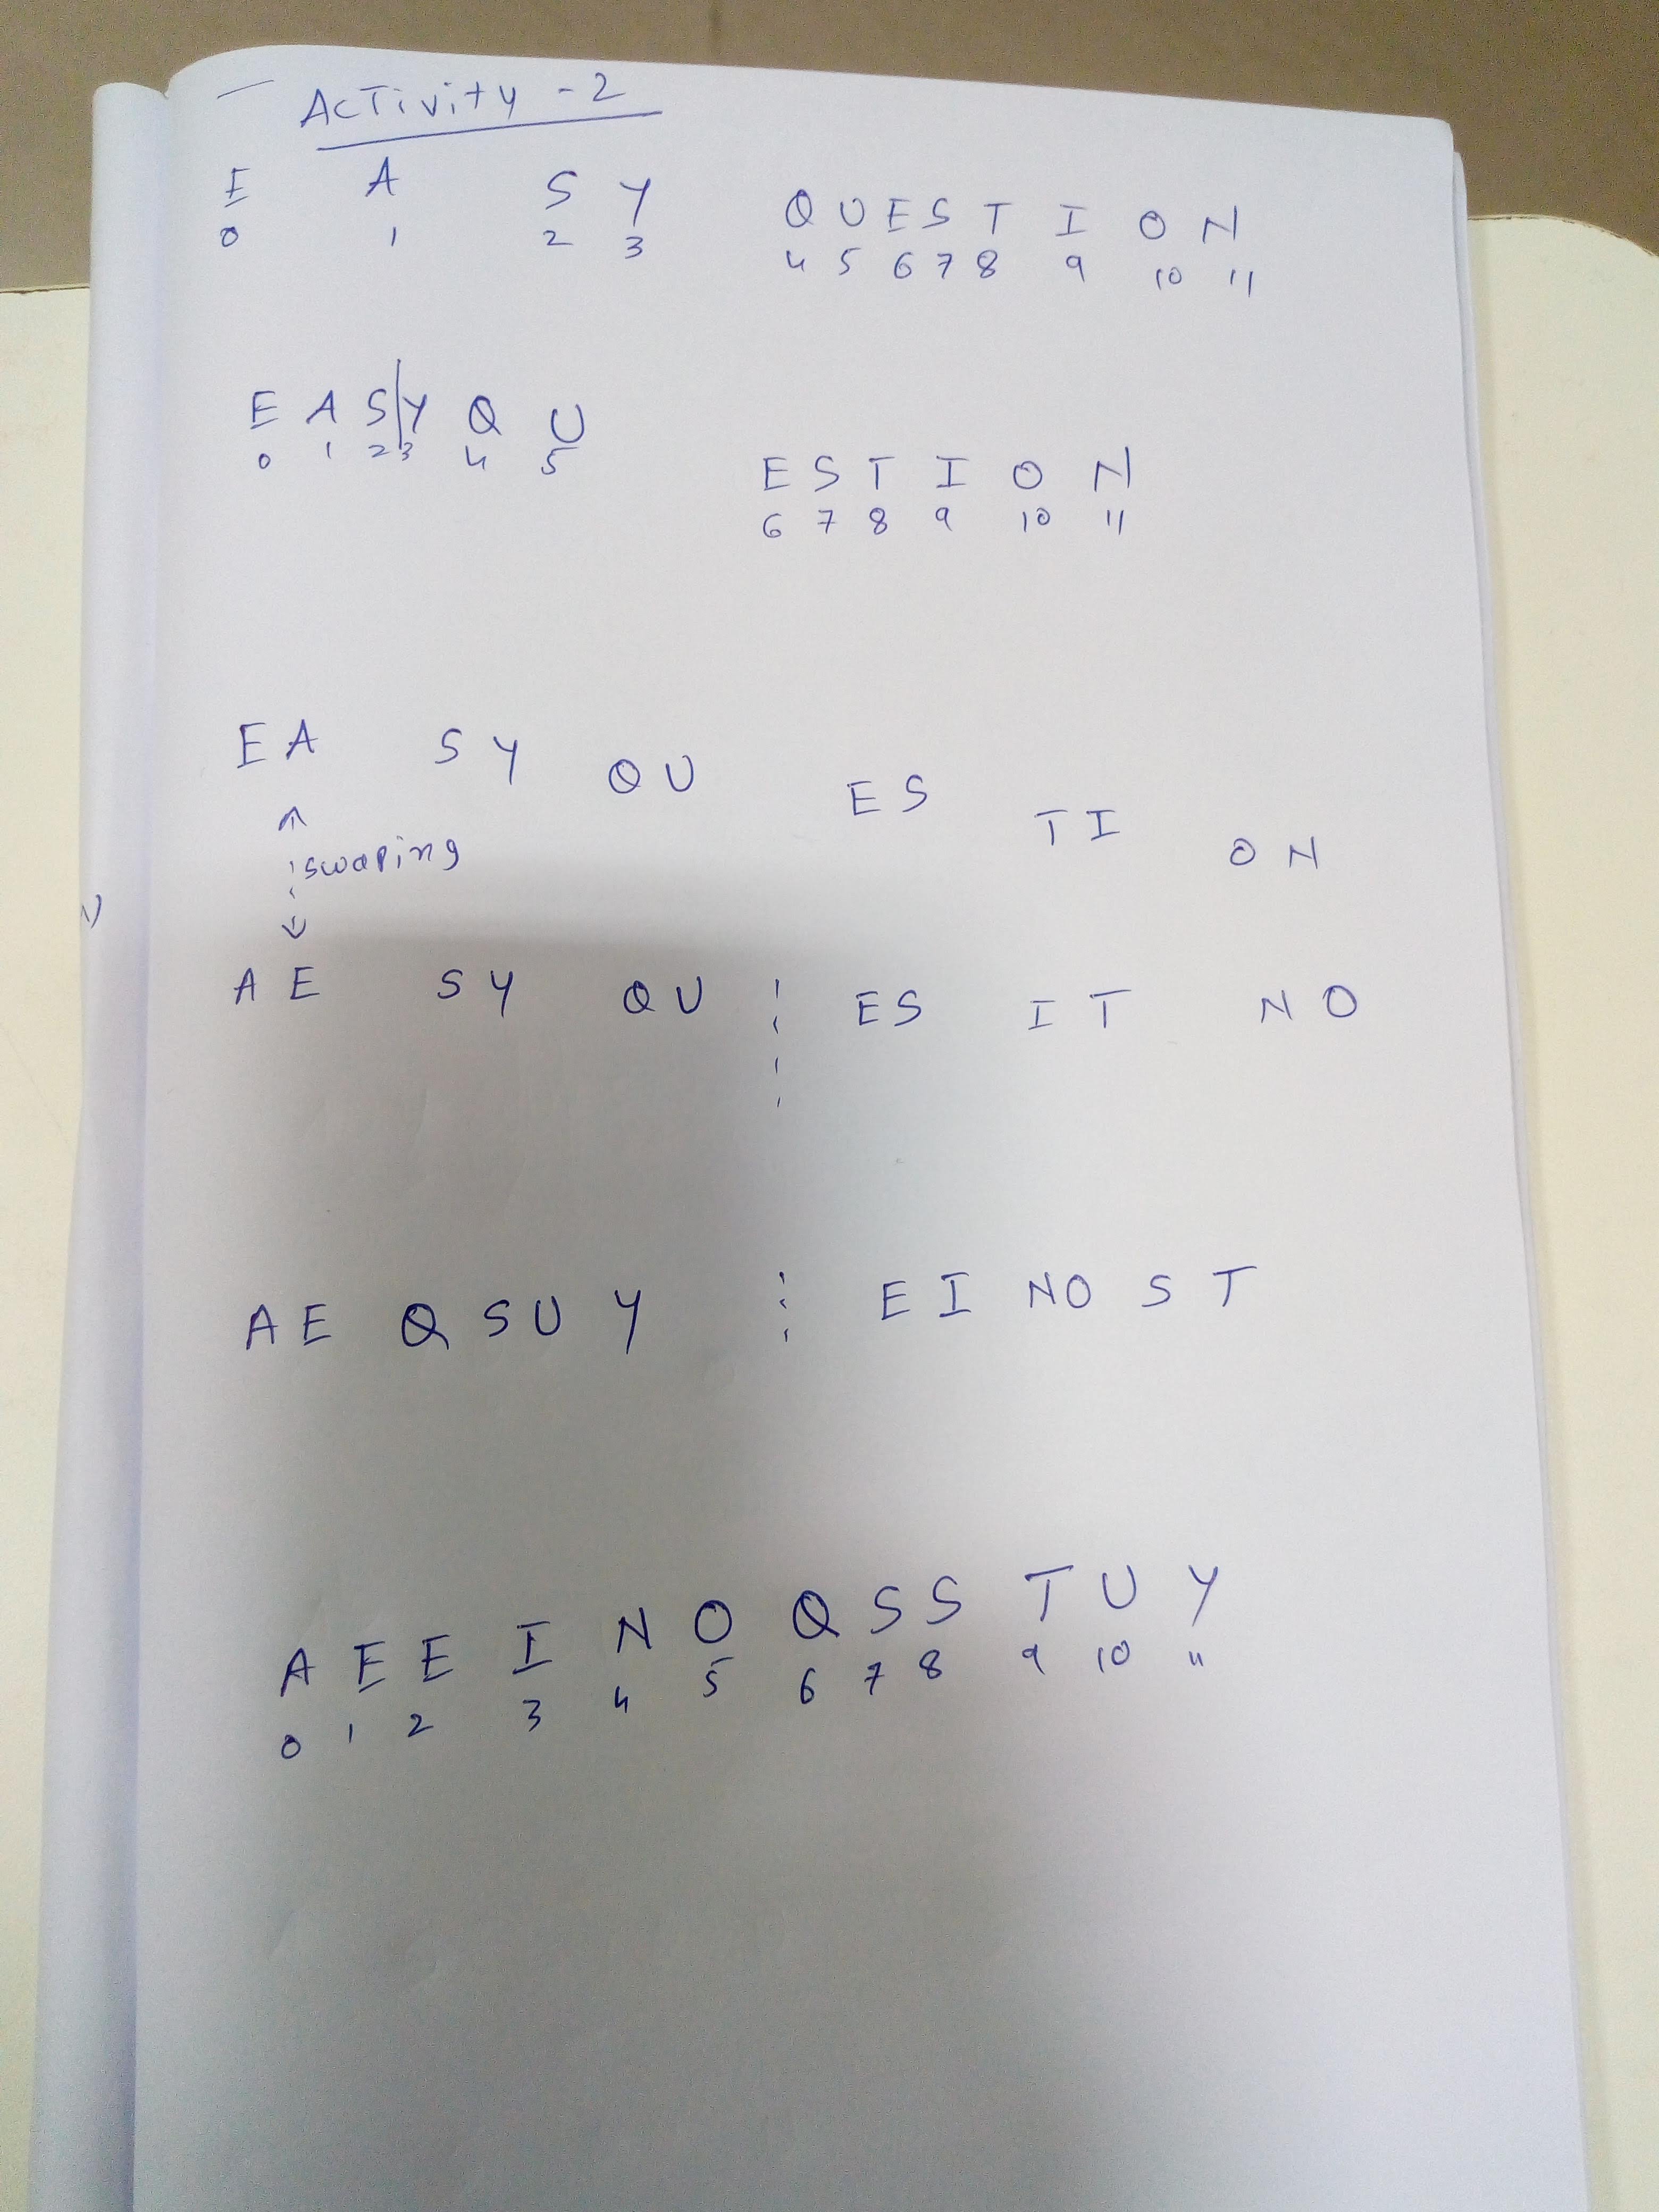 Activity - 2
E A S Y Q U E S T I O N
0 1 2 3 4 5 6 7 8 9 10 11
E A S Y Q U
0 1 2 3 4 5
E S T I O N
6 7 8 9 10 11
E A S Y Q U E S T I O N
swaping
A E S Y Q U E S I T N O
A E Q S U Y E I N O S T
A E E I N O Q S S T U Y
0 1 2 3 4 5 6 7 8 9 10 11